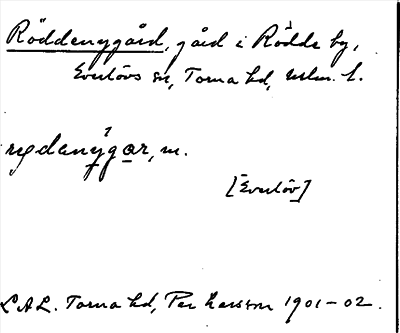 Röddenygård, gård i Rödde by,
Everlövs sn, Torna hd, Mlm. l.
rödenýgar, m.
[Everlöv]
L.A.L. Torna hd, Per Larsson 1901-02.